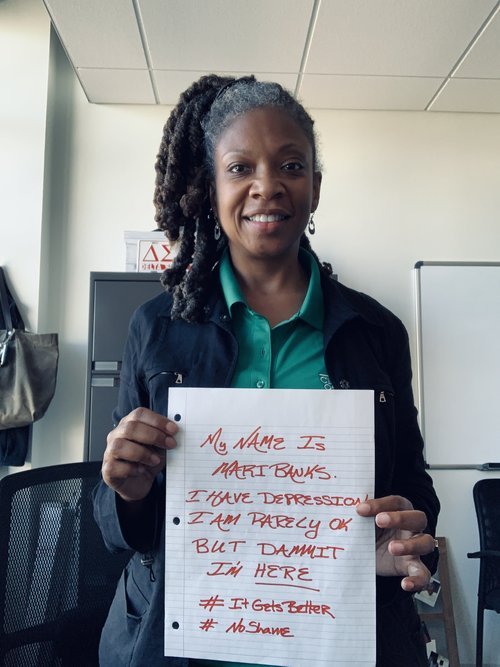 ΔΣ
DELTA
My NAME Is
MARI BANKS.
I HAVE DEPRESSION
I AM RARELY OK
BUT DAMMIT
I'M HERE
# ItGetsBetter
# NoShame